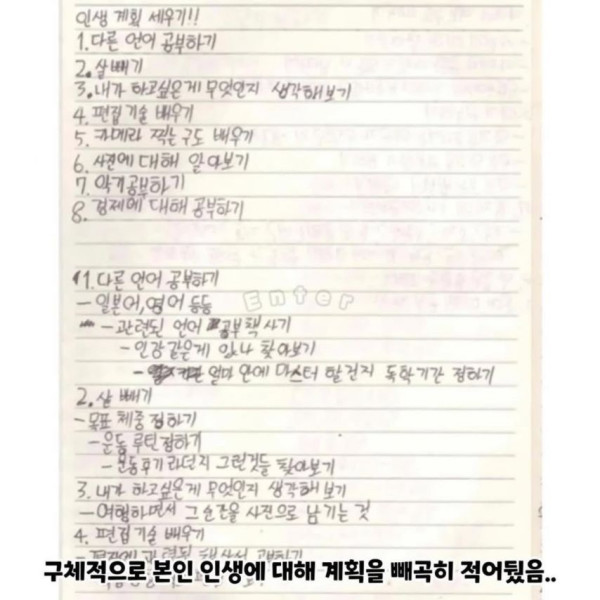 인생 계획 세우기!!
1. 다른 언어 공부하기
2. 살 빼기
3. 내가 하고싶은게 무엇인지 생각해보기
4. 편집기술 배우기
5. 카메라 찍는 구도 배우기
6. 사진에 대해 알아보기
7. 악기공부하기
8. 경제에 대해 공부하기
1. 다른 언어 공부하기
Enter
- 일본어, 영어 등등
- 관련된 언어 공부책 사기
- 인강같은게 있나 찾아보기
- 얼마 안에 마스터 할건지 독학기간 정하기
2. 살 빼기
- 목표 체중 정하기
- 운동 루틴 정하기
- 운동후기라던지 그런것들 찾아보기
3. 내가 하고싶은게 무엇인지 생각해보기
- 여행하면서 그 순간을 사진으로 남기는 것
4. 편집기술 배우기
구체적으로 본인 인생에 대해 계획을 빼곡히 적어뒀음..